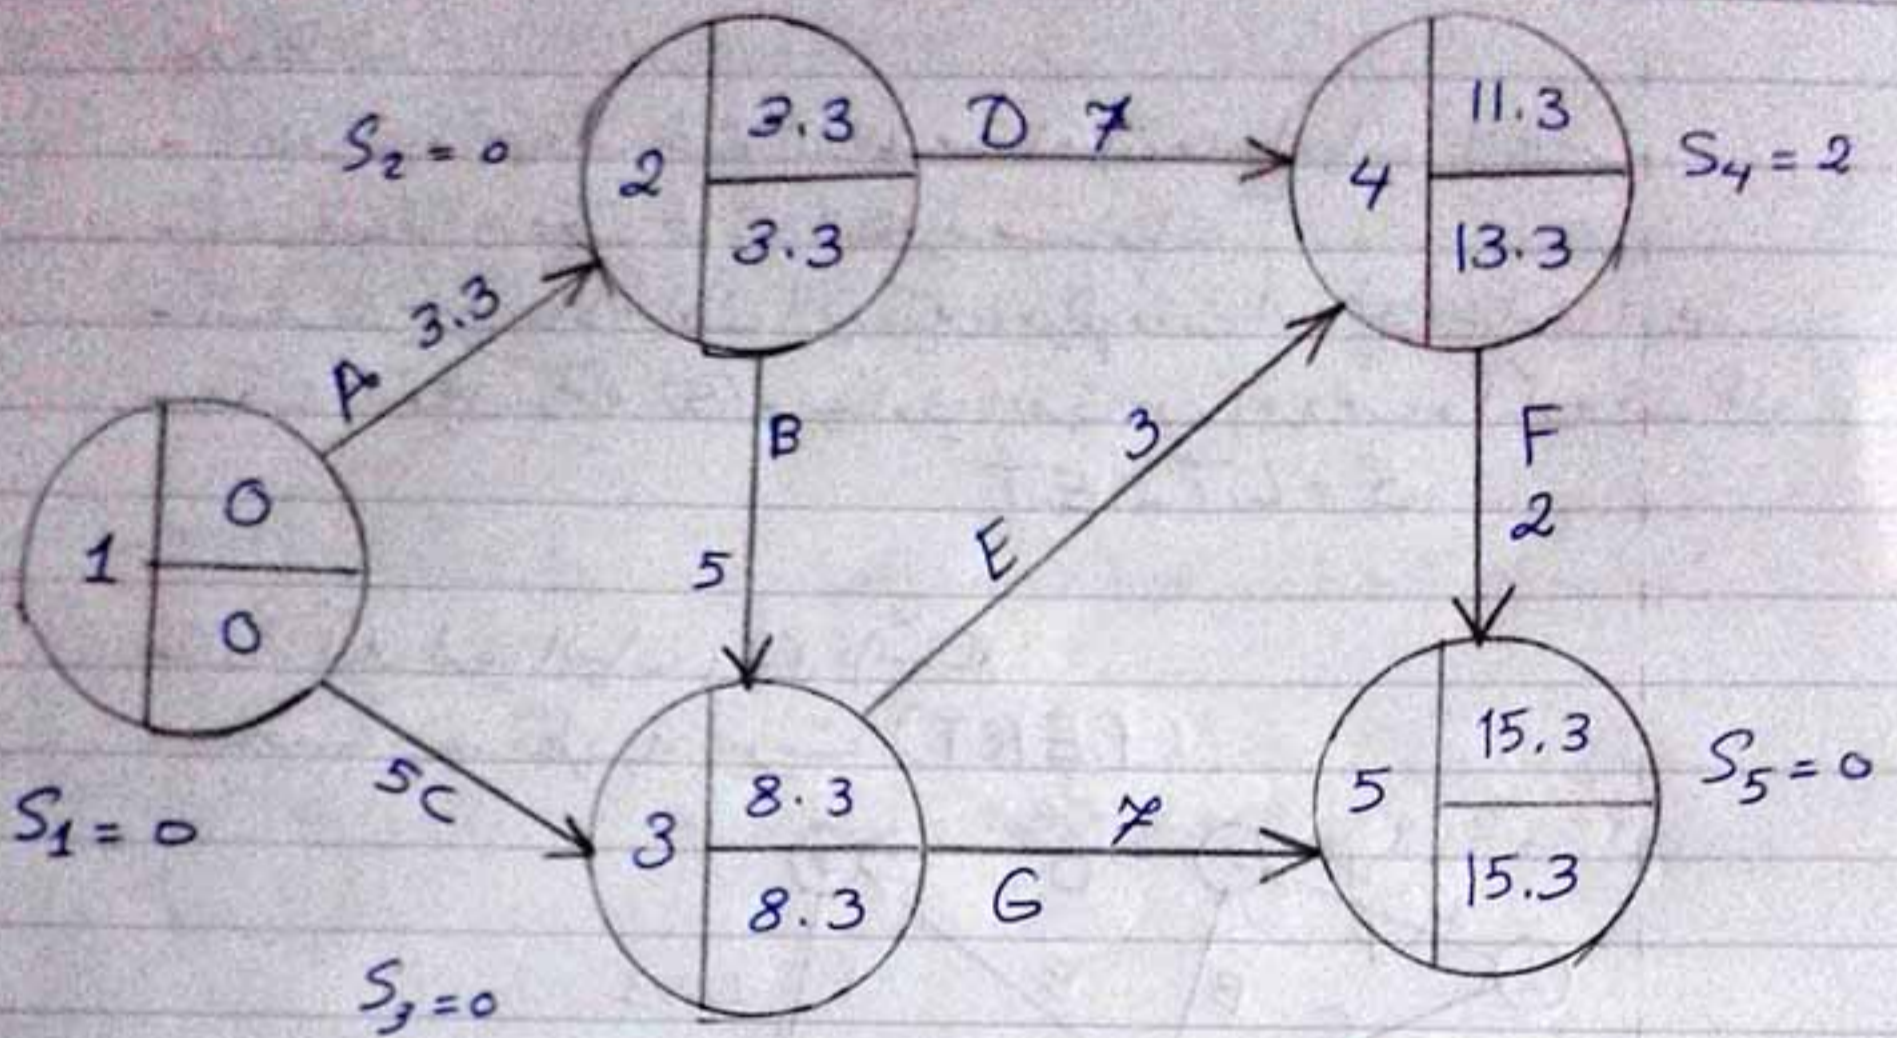 S₂ = 0
2
3.3
3.3
D 7
4
11.3
13.3
S₄ = 2
A 3.3
B
5
E 3
F
2
1
0
0
S₁ = 0
5C
3
8.3
8.3
S₃ = 0
7
G
5
15.3
15.3
S₅ = 0